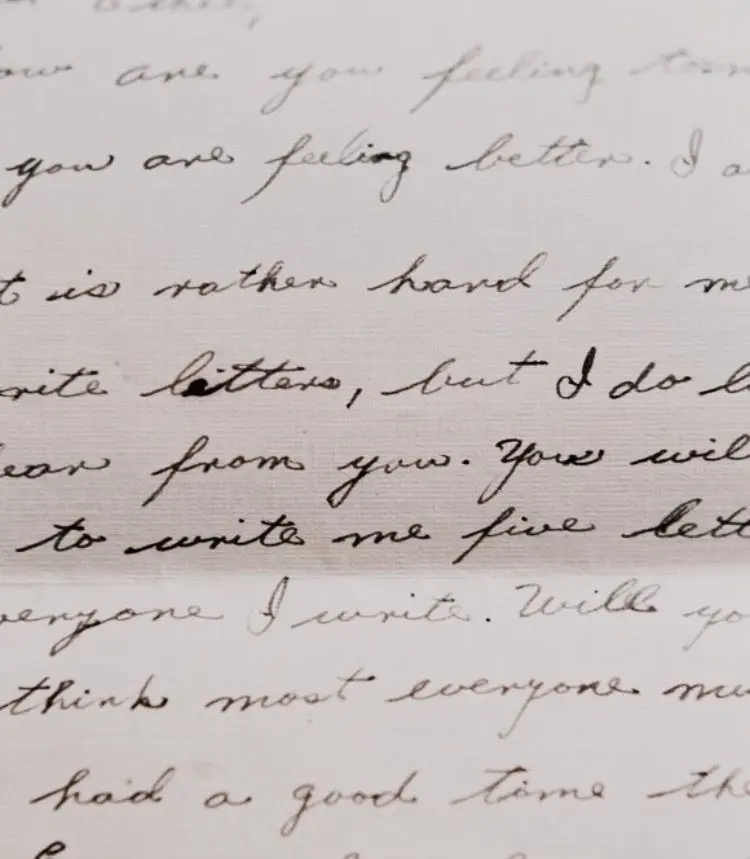 ow are you feeling
you are feeling better. I a
t is rather hard for me
rite letters, but I do l
ear from you. You wil
to write me five lett
veryone I write. Will yo
think most everyone mu
had a good time the